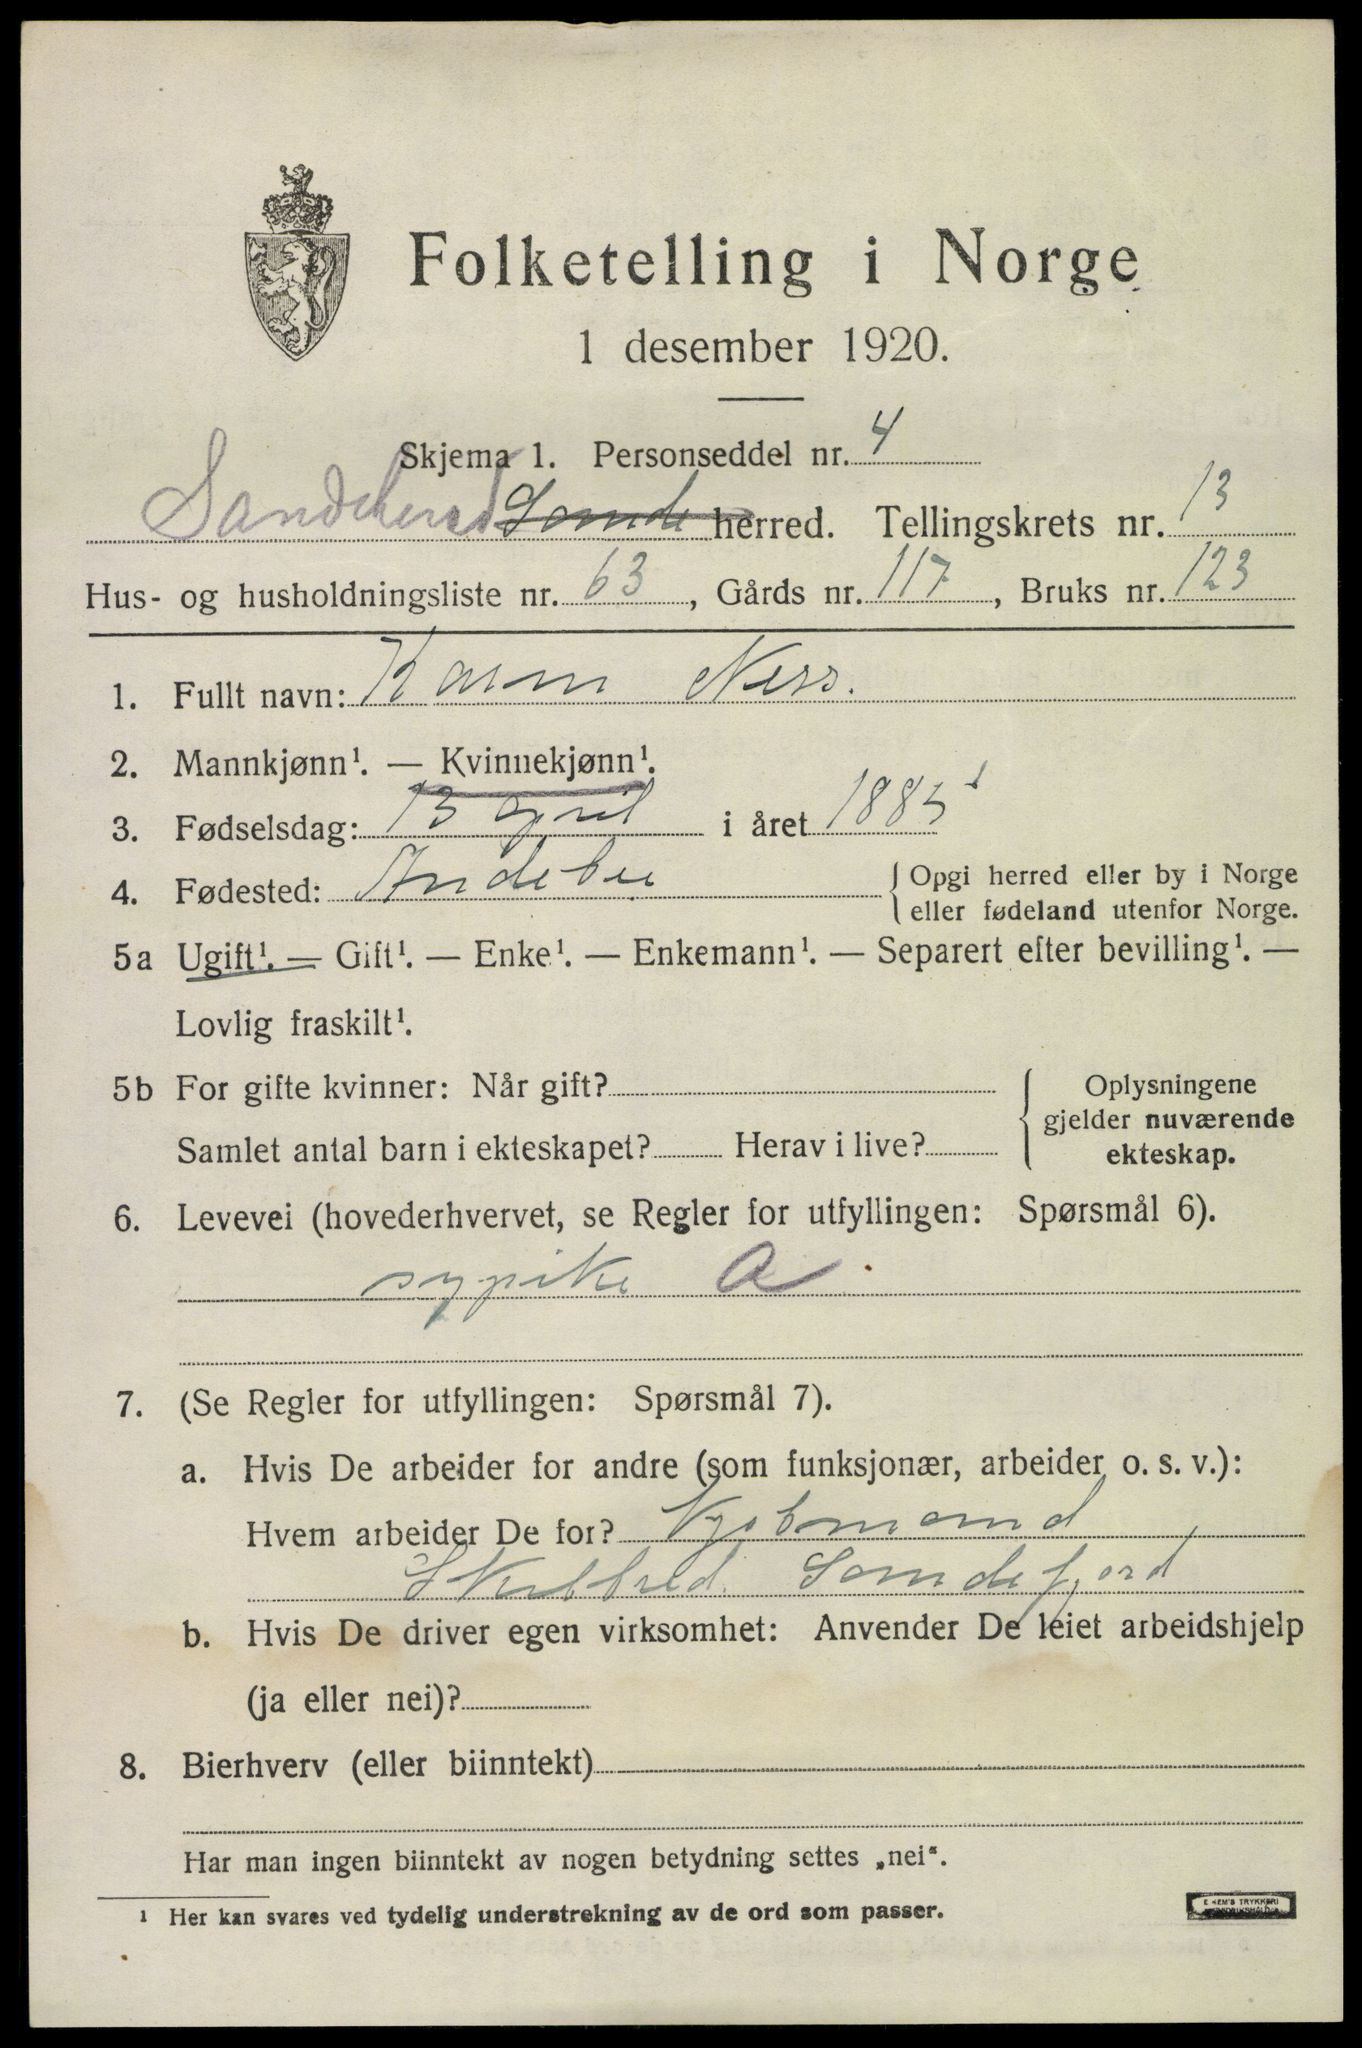 Folketelling i Norge
1 desember 1920.
Skjema 1. Personseddel nr. 4
Sandeherred Sande herred. Tellingskrets nr. 13
Hus- og husholdningsliste nr. 63, Gårds nr. 117, Bruks nr. 123
1. Fullt navn: Karen Ness.
2. Mannkjønn¹. — Kvinnekjønn¹.
3. Fødselsdag: 13 april i året 1885
4. Fødested: Andebu { Opgi herred eller by i Norge
eller fødeland utenfor Norge.
5a Ugift¹. — Gift¹. — Enke¹. — Enkemann¹. — Separert efter bevilling¹. —
Lovlig fraskilt¹.
5b For gifte kvinner: Når gift? { Oplysningene
gjelder nuværende
Samlet antal barn i ekteskapet? Herav i live? ekteskap.
6. Levevei (hovederhvervet, se Regler for utfyllingen: Spørsmål 6).
sypike A
7. (Se Regler for utfyllingen: Spørsmål 7).
a. Hvis De arbeider for andre (som funksjonær, arbeider o. s. v.):
Hvem arbeider De for? Kjøbmand
Sandefjord
b. Hvis De driver egen virksomhet: Anvender De leiet arbeidshjelp
(ja eller nei)?
8. Bierhverv (eller biinntekt)
Har man ingen biinntekt av nogen betydning settes „nei“.
¹ Her kan svares ved tydelig understrekning av de ord som passer.